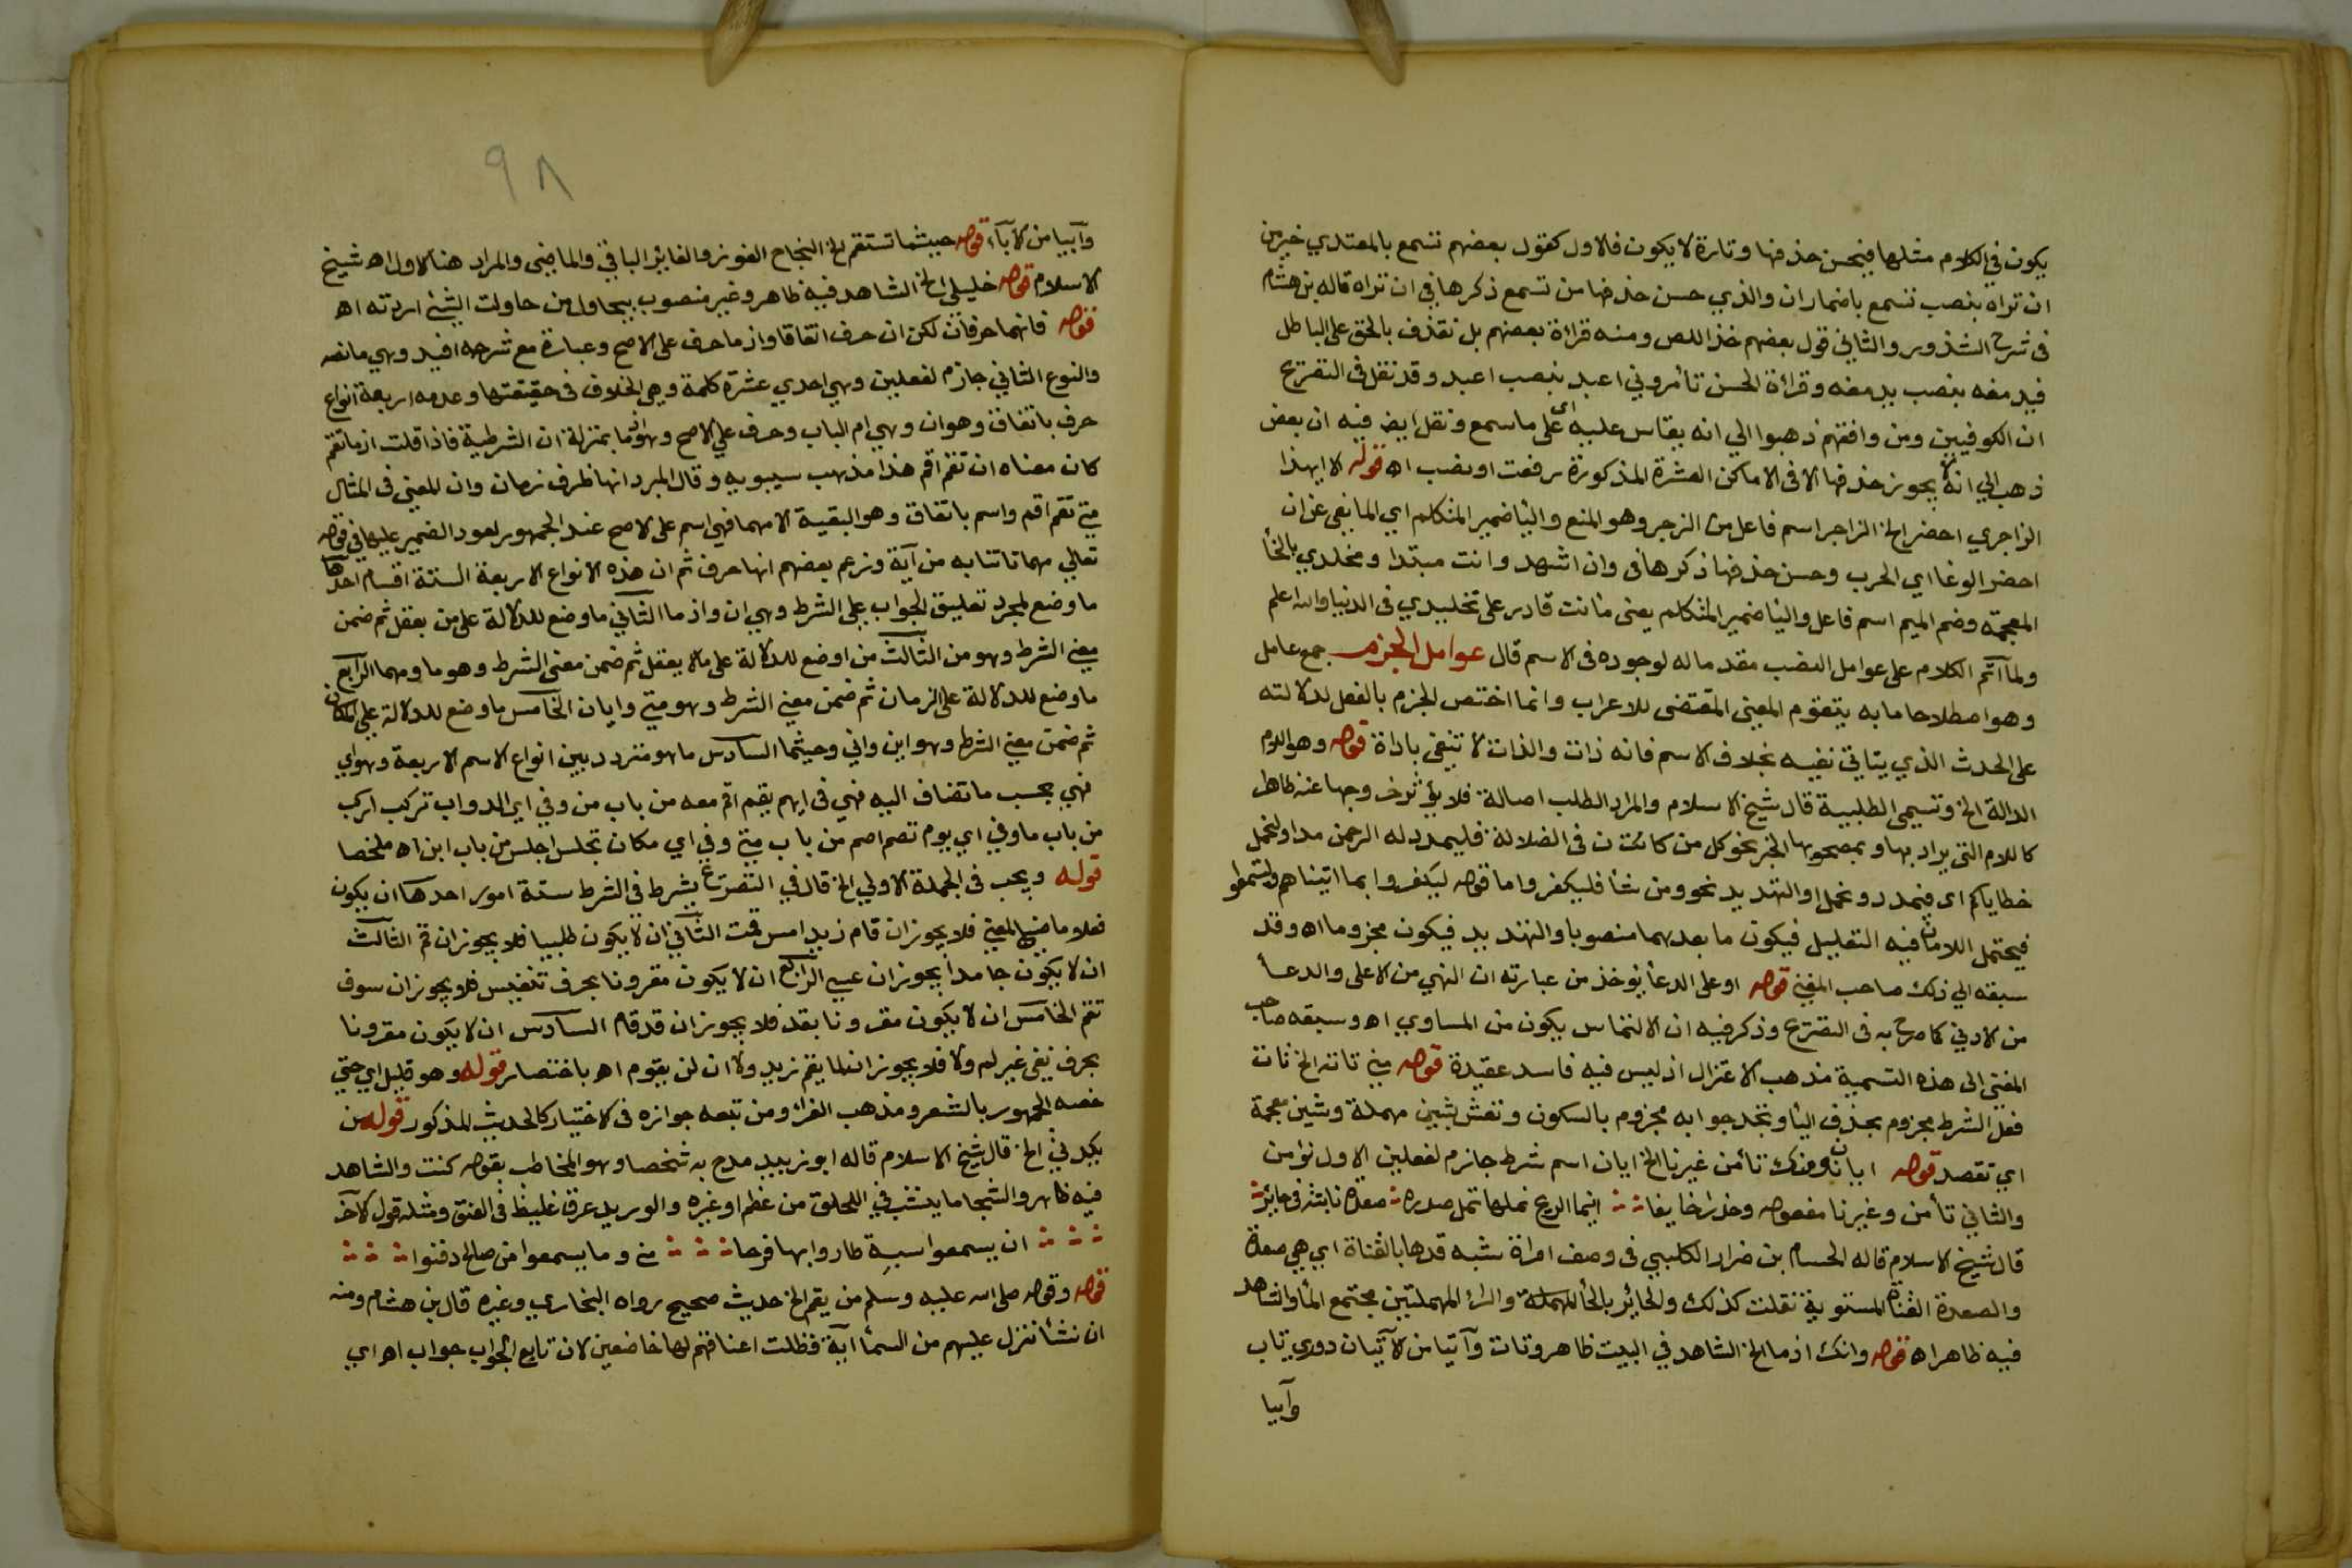 يكون في الكلام مثلها فيحسن حذفها وتارة لا يكون فالاول كقول بعضهم تسمع بالمعيدي خير من
ان تراه بنصب تسمع باضمار ان والذي حسن حذفها من تسمع ذكرها في ان تراه قاله بن هشام
في شرح الشذور والثاني قول بعضهم خذ اللص ومنه قراءة بعضهم بل نقذف بالحق على الباطل
فيدمغه بنصب يدمغه وقراءة الحسن تأمروني اعبد بنصب اعبد وقد نقل في التصريح
ان الكوفيين ومن وافقهم ذهبوا الي انه يقاس عليه اي على ما سمع ونقل ايضا فيه ان بعض
ذهب الي انه لا يجوز حذفها الا في الاماكن العشرة المذكورة رفعت او نصب اه قوله الا ايهذا
الزاجري احضر الخ الزاجر اسم فاعل من الزجر وهو المنع واليا ضمير المتكلم اي المانعي عن ان
احضر الوغا اي الحرب وحسن حذفها ذكرها في وان اشهد وانت مبتدا ومخلدي بالخا
المعجمة وضم الميم اسم فاعل واليا ضمير المتكلم يعني ما انت قادر على تخليدي في الدنيا والله اعلم
ولما اتم الكلام على عوامل النصب مقدما له لوجوده في الاسم قال عوامل الجزم جمع عامل
وهو اصطلاحا ما به يتقوم المعنى المقتضى للاعراب وانما اختص الجزم بالفعل لدلالته
على الحدث الذي يتاتي نفيه بخلاف الاسم فانه ذات والذات لا تنفى باداة قوله وهو اللام
الدالة الخ وتسمى الطلبية قال شيخ الاسلام والمراد الطلب اصالة فلا يؤثر خروجها عنه ظاهرا
كاللام التي يراد بها وبمصحوبها الخبر نحو كل من كان في الضلالة فليمدد له الرحمن مدا ولنحمل
خطاياكم اي فيمدد ونحمل او التهديد نحو ومن شا فليكفر واما قوله ليكفروا بما اتيناهم وليتمتعوا
فيحتمل اللامان فيه التعليل فيكون ما بعدهما منصوبا والتهديد فيكون مجزوما اه وقد
سبقه الي ذلك صاحب المغني قوله او على الدعا يؤخذ من عبارته ان النهي من الاعلى والدعا
من الادني كما صرح به في التصريح وذكر فيه ان الالتماس يكون من المساوي اه وسبقه صاحب
المغني الى هذه التسمية مذهب الاعتزال اذ ليس فيه فاسد عقيدة قوله متي تاته الخ تات
فعل الشرط مجزوم بحذف اليا وتجد جوابه مجزوم بالسكون وتعش بعين مهملة وشين معجمة
اي تقصد قوله ايان نؤمنك تأمن غيرنا الخ ايان اسم شرط جازم لفعلين الاول نؤمن
والثاني تأمن وغيرنا مفعوله وحذرا خايفا اينما الريح تميلها تمل صدره صعدة نابتة في حائر
قال شيخ الاسلام قاله الحسام بن ضرار الكلبي في وصف امراة شبه قدها بالقناة اي هي صعدة
والصعدة القناة المستوية نقلت كذلك والحائر بالحا المهملة والراء المهملتين مجتمع الما والشاهد
فيه ظاهر اه قوله وانك اذ ما الخ الشاهد في البيت ظاهر وتات وآتيا من الآتيان دوري تاب
وآبيا
٩٨
وآبيا من الاباء قوله حيثما تستقم الخ النجاح الفوز والغابر الباقي والماضي والمراد هنا الاول اه شيخ
الاسلام قوله خليلي الخ الشاهد فيه ظاهر وغير منصوب بيحاول من حاولت الشئ اردته اه
قوله فانهما حرفان لكن ان حرف اتفاقا واذ ما حرف على الاصح وعبارة مع شرحه افيد وهي ما نصه
والنوع الثاني جازم لفعلين وهي احدي عشرة كلمة وهي الخلاف في حقيقتها وعدمه اربعة انواع
حرف باتفاق وهو ان وهي ام الباب وحرف علي الاصح وهو اذ ما بمنزلة ان الشرطية فاذا قلت اذ ما تقم
كان معناه ان تقم اقم هذا مذهب سيبويه وقال المبرد انها ظرف زمان وان المعنى في المثال
متي تقم اقم واسم باتفاق وهو البقية الا مهما فهي اسم على الاصح عند الجمهور لعود الضمير عليها في قوله
تعالي مهما تاتنا به من آية وزعم بعضهم انها حرف ثم ان هذه الانواع الاربعة الستة اقسام احدها
ما وضع لمجرد تعليق الجواب على الشرط وهي ان واذ ما الثاني ما وضع للدلالة على من يعقل ثم ضمن
معني الشرط وهو من الثالث ما وضع للدلالة على ما لا يعقل ثم ضمن معنى الشرط وهو ما ومهما الرابع
ما وضع للدلالة على الزمان ثم ضمن معني الشرط وهو متي وايان الخامس ما وضع للدلالة على المكان
ثم ضمن معني الشرط وهو اين واني وحيثما السادس ما هو متردد بين انواع الاسم الاربعة وهو اي
فهي بحسب ما تضاف اليه فهي في ايهم يقم اقم معه من باب من وفي اي الدواب تركب اركب
من باب ما وفي اي يوم تصم اصم من باب متي وفي اي مكان تجلس اجلس من باب اين اه ملخصا
قوله ويجب في الجملة الاولي الخ قال في التصريح يشرط في الشرط ستة امور احدها ان يكون
فعلا ماضي المعني فلا يجوز ان قام زيد امس قمت الثاني ان لا يكون طلبيا فلا يجوز ان قم الثالث
ان لا يكون جامدا يجوز ان عسي الرابع ان لا يكون مقرونا بحرف تنفيس فلا يجوز ان سوف
تقم الخامس ان لا يكون مقرونا بقد فلا يجوز ان قد قام السادس ان لا يكون مقرونا
بحرف نفى غير لم ولا فلا يجوز ان لما يقم زيد ولا ان لن يقوم اه باختصار قوله وهو قليل اي حتي
خصه الجمهور بالشعر ومذهب الفراء ومن تبعه جوازه في الاختيار كالحديث المذكور قوله من
يكدني الخ قال شيخ الاسلام قاله ابو زبيد مدح به شخصا وهو المخاطب بقوله كنت والشاهد
فيه ظاهر والشجا ما ينشب في الحلق من عظم او غيره والوريد عرق غليظ في العنق ومثله قول الآخر
ان يسمعوا سبة طاروا بها فرحا مني وما يسمعوا من صالح دفنوا
قوله وقوله صلى الله عليه وسلم من يقم الخ حديث صحيح رواه البخاري وغيره قال بن هشام ومنه
ان نشأ ننزل عليهم من السماء آية فظلت اعناقهم لها خاضعين لان تابع الجواب جواب اه اي